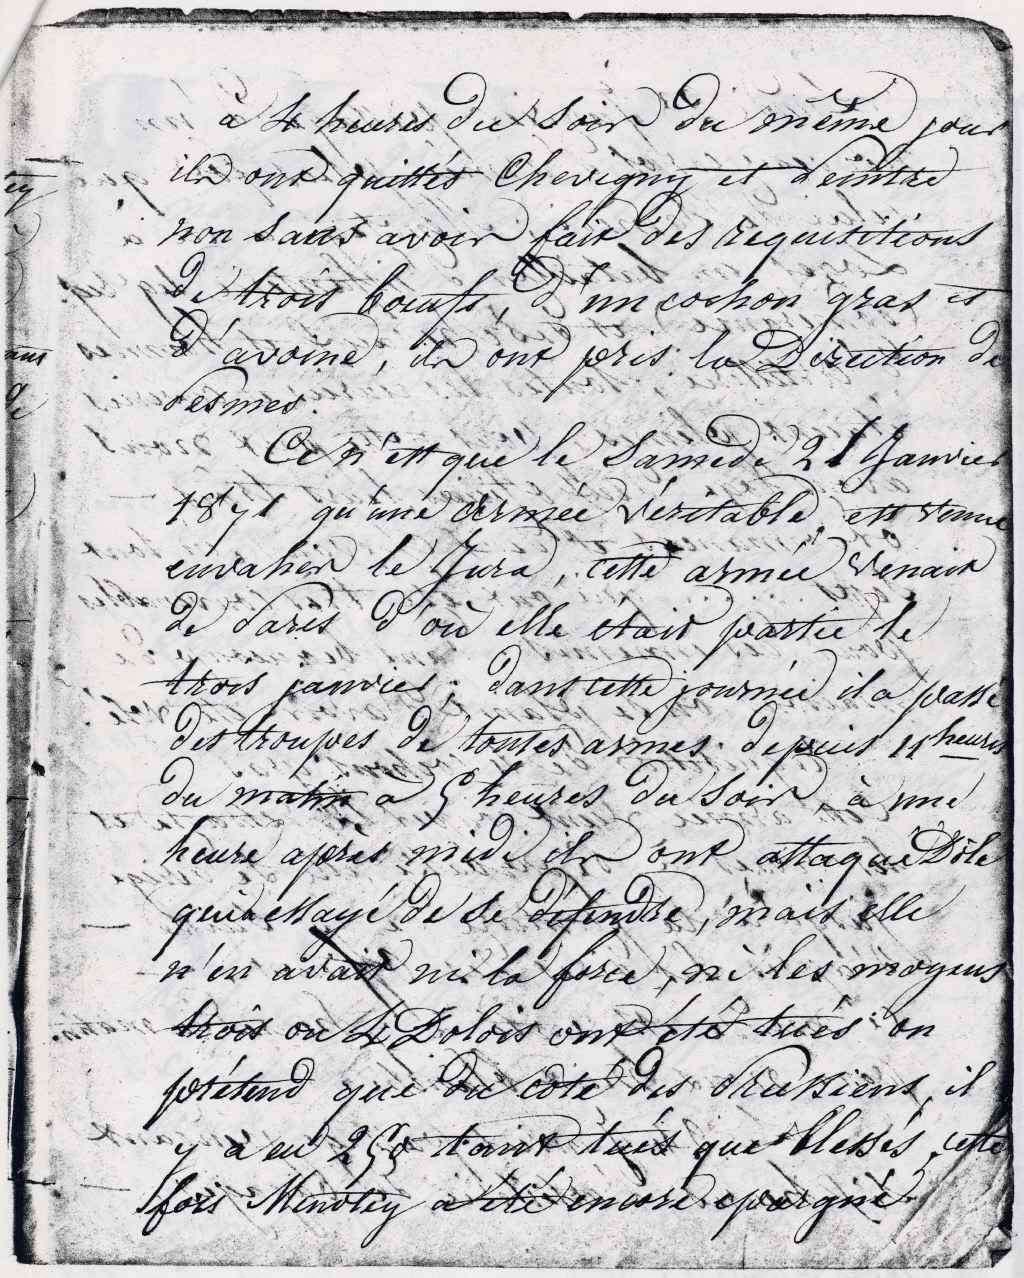 à 4 heures du soir du même jour
ils ont quittés Chevigny et Peintre
non sans avoir fait des requisitions
de trois bœufs, d'un cochon gras et
d'avoine, ils ont pris la Direction de
Pesmes.
Ce n'est que le Samedi 21 Janvier
1871 qu'une armée véritable est venue
envahir le Jura, cette armée venait
de Paris d'où elle était partie le
trois janvier; dans cette journée il a passé
des troupes de toutes armes depuis 11 heures
du matin à 5 heures du soir, à une
heure après midi ils ont attaqué Dôle
qui a essayé de se défendre, mais elle
n'en avait ni la force, ni les moyens
trois ou 4 Dolois ont été tués on
prétend que du côté des Prussiens, il
y a eu 250 tant tués que blessés, cette
fois Menotey a été encore epargné